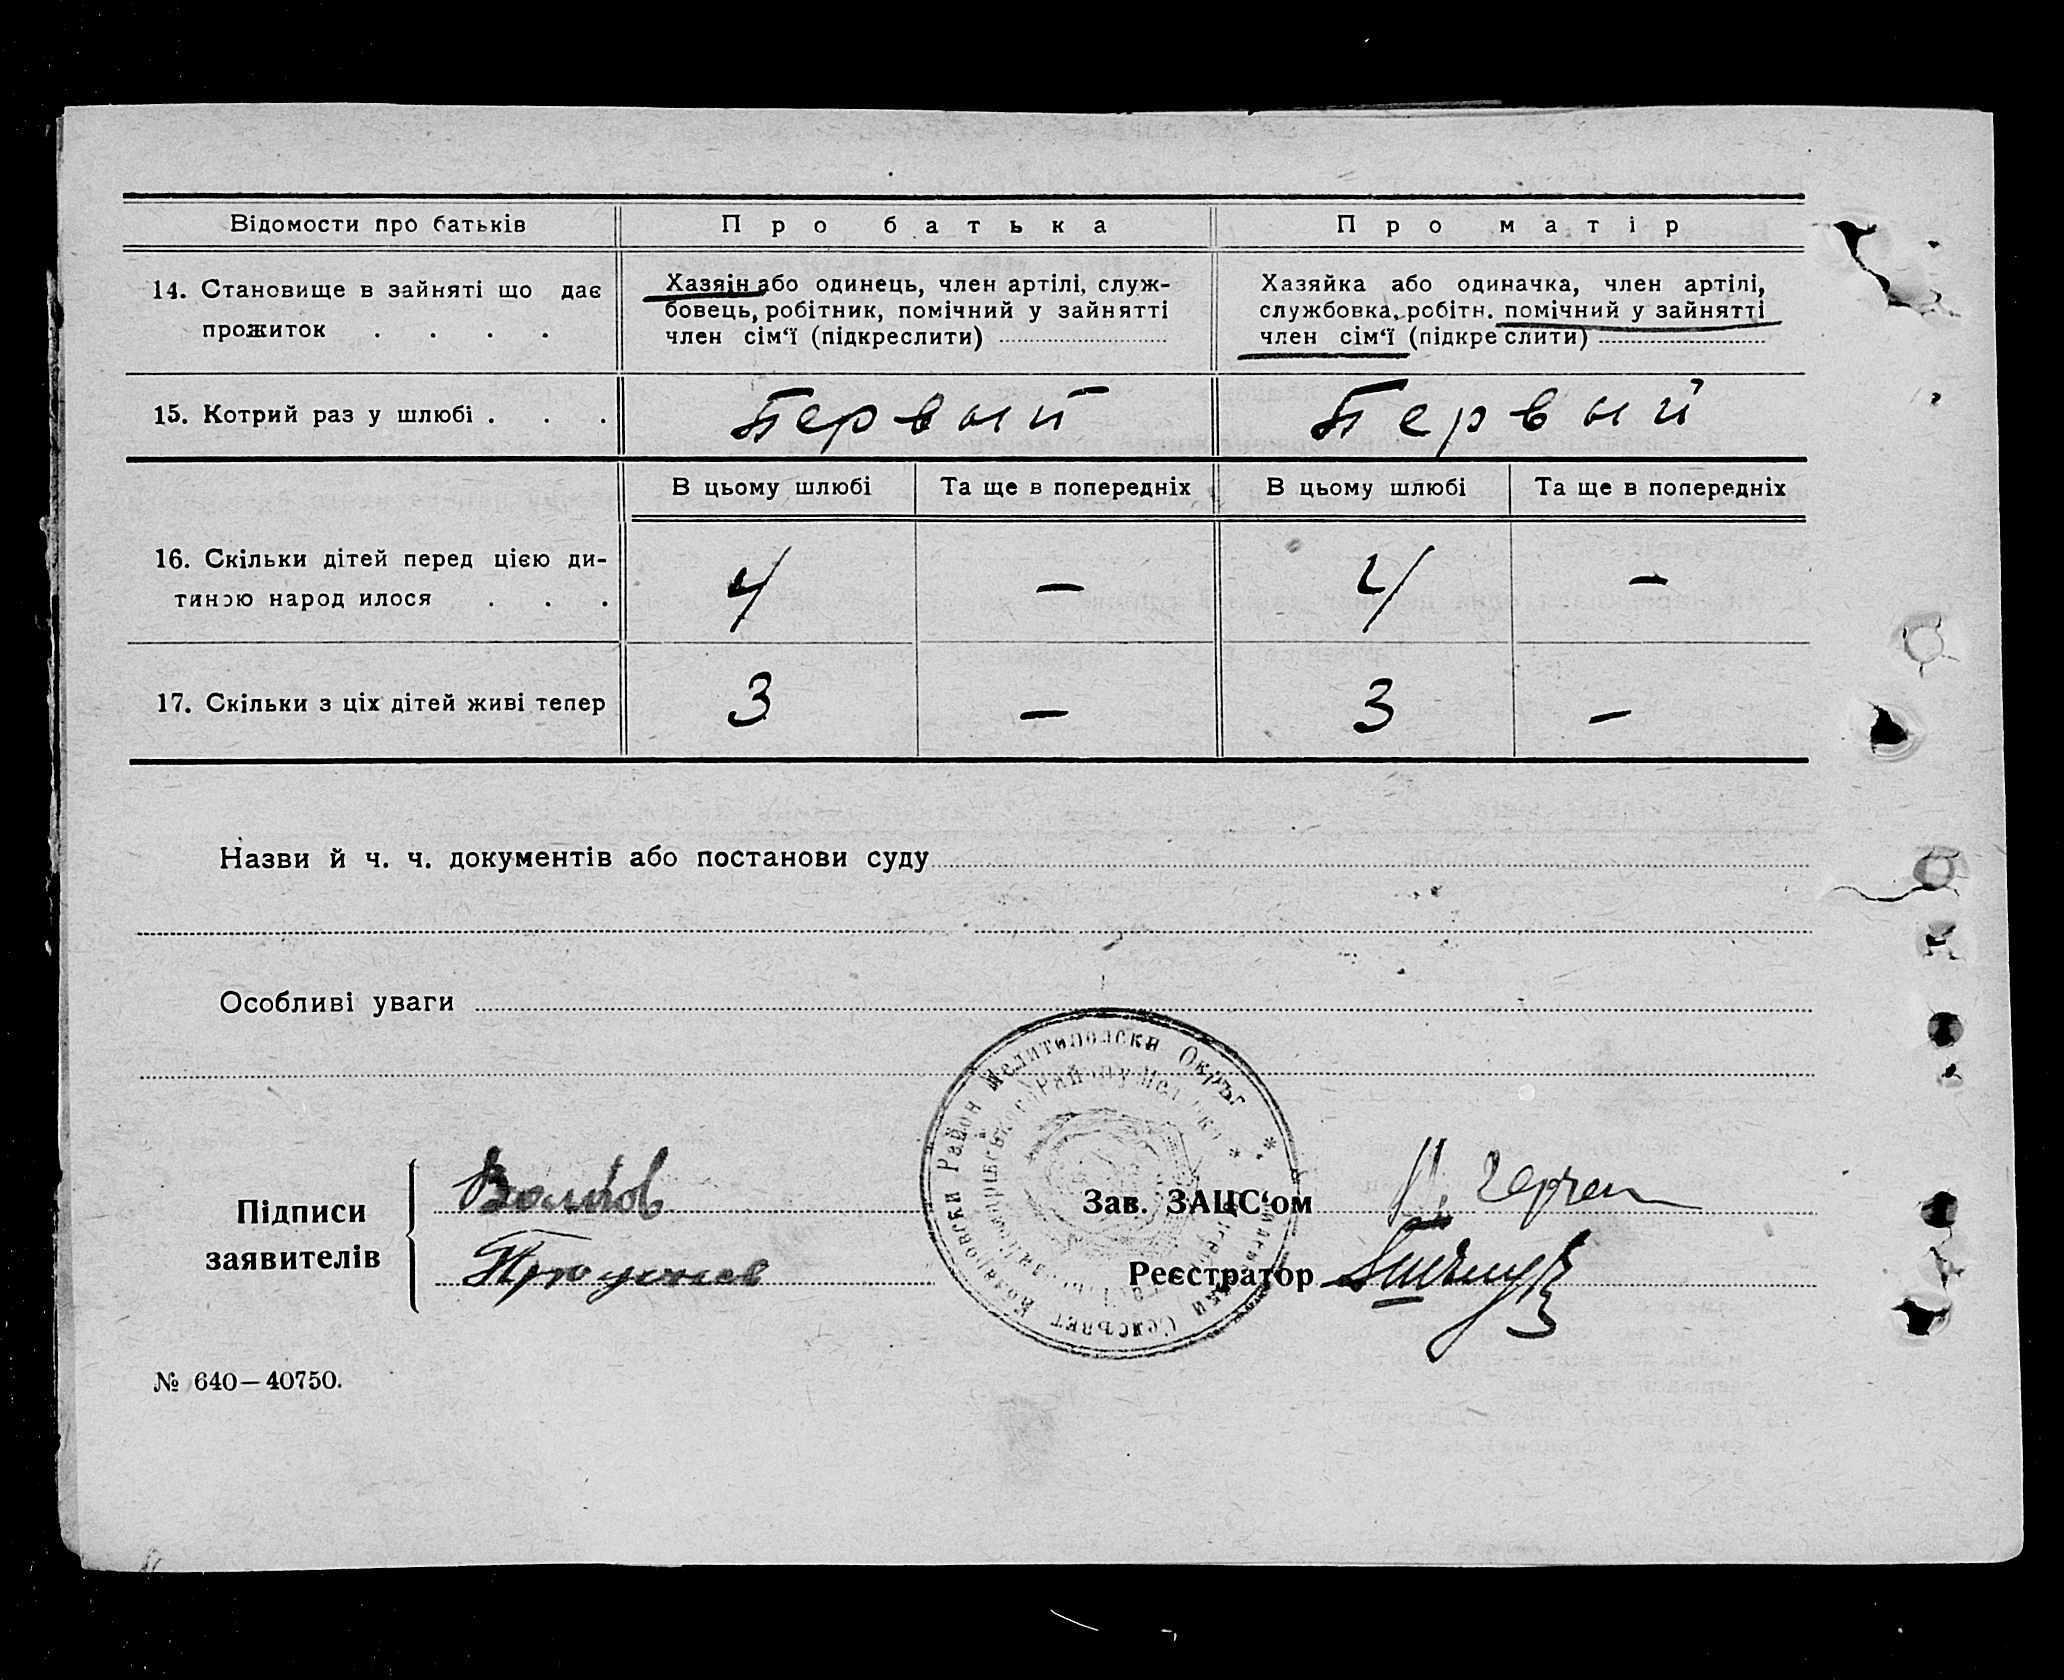 Відомости про батьків Про батька Про матір
14. Становище в зайняті що дає прожиток . . . .
Хазяїн або одинець, член артілі, служ-
бовець, робітник, помічний у зайнятті
член сім‘ї (підкреслити)
Хазяйка або одиначка, член артілі,
службовка, робітн. помічний у зайнятті
член сім‘ї (підкреслити)
15. Котрий раз у шлюбі . . . Первый Первый
В цьому шлюбі Та ще в попередніх В цьому шлюбі Та ще в попередніх
16. Скільки дітей перед цією ди-
тиною народилося . . . 4 — 4 —
17. Скільки з ціх дітей живі тепер 3 — 3 —
Назви й ч. ч. документів або постанови суду
Особливі уваги
Район Мелитополски Окръг
Селсъвет
Підписи
заявителів
Волков
Зав. ЗАЦС‘ом
Реєстратор
№ 640—40750.